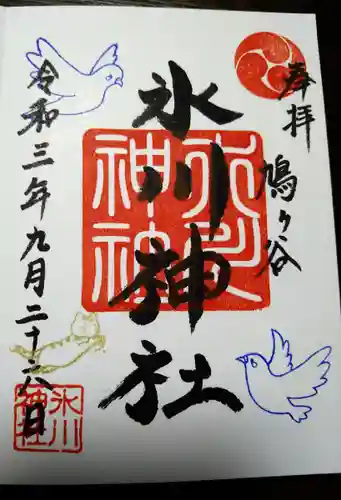 奉拝
鳩ヶ谷
氷川神社
令和三年九月二十六日
氷川
神社
氷川
神社